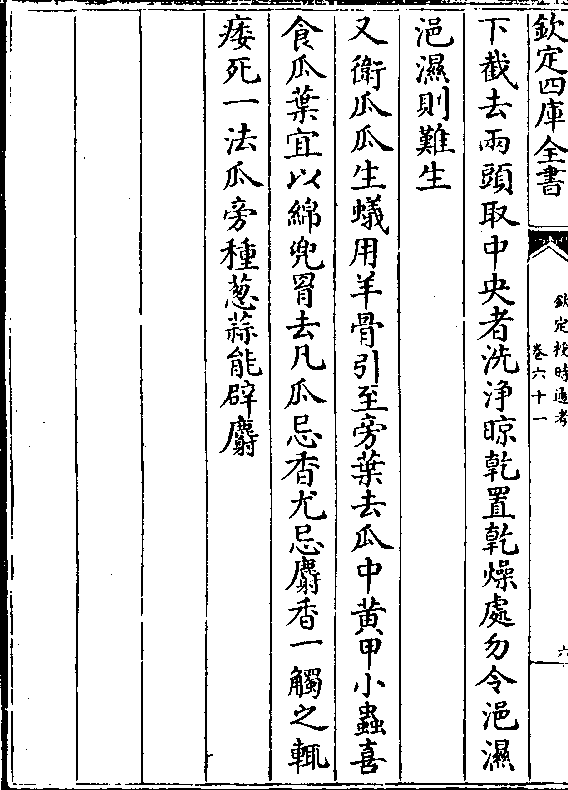 欽定四庫全書
欽定授時通考
卷六十一
六
下截去兩頭取中央者洗浄晾乾置乾燥處勿令浥濕
浥濕則難生
又衛瓜瓜生蟻用羊骨引至旁葉去瓜中黄甲小蟲喜
食瓜葉宜以綿兜罥去凡瓜忌香尤忌麝香一觸之輒
痿死一法瓜旁種葱蒜能辟麝